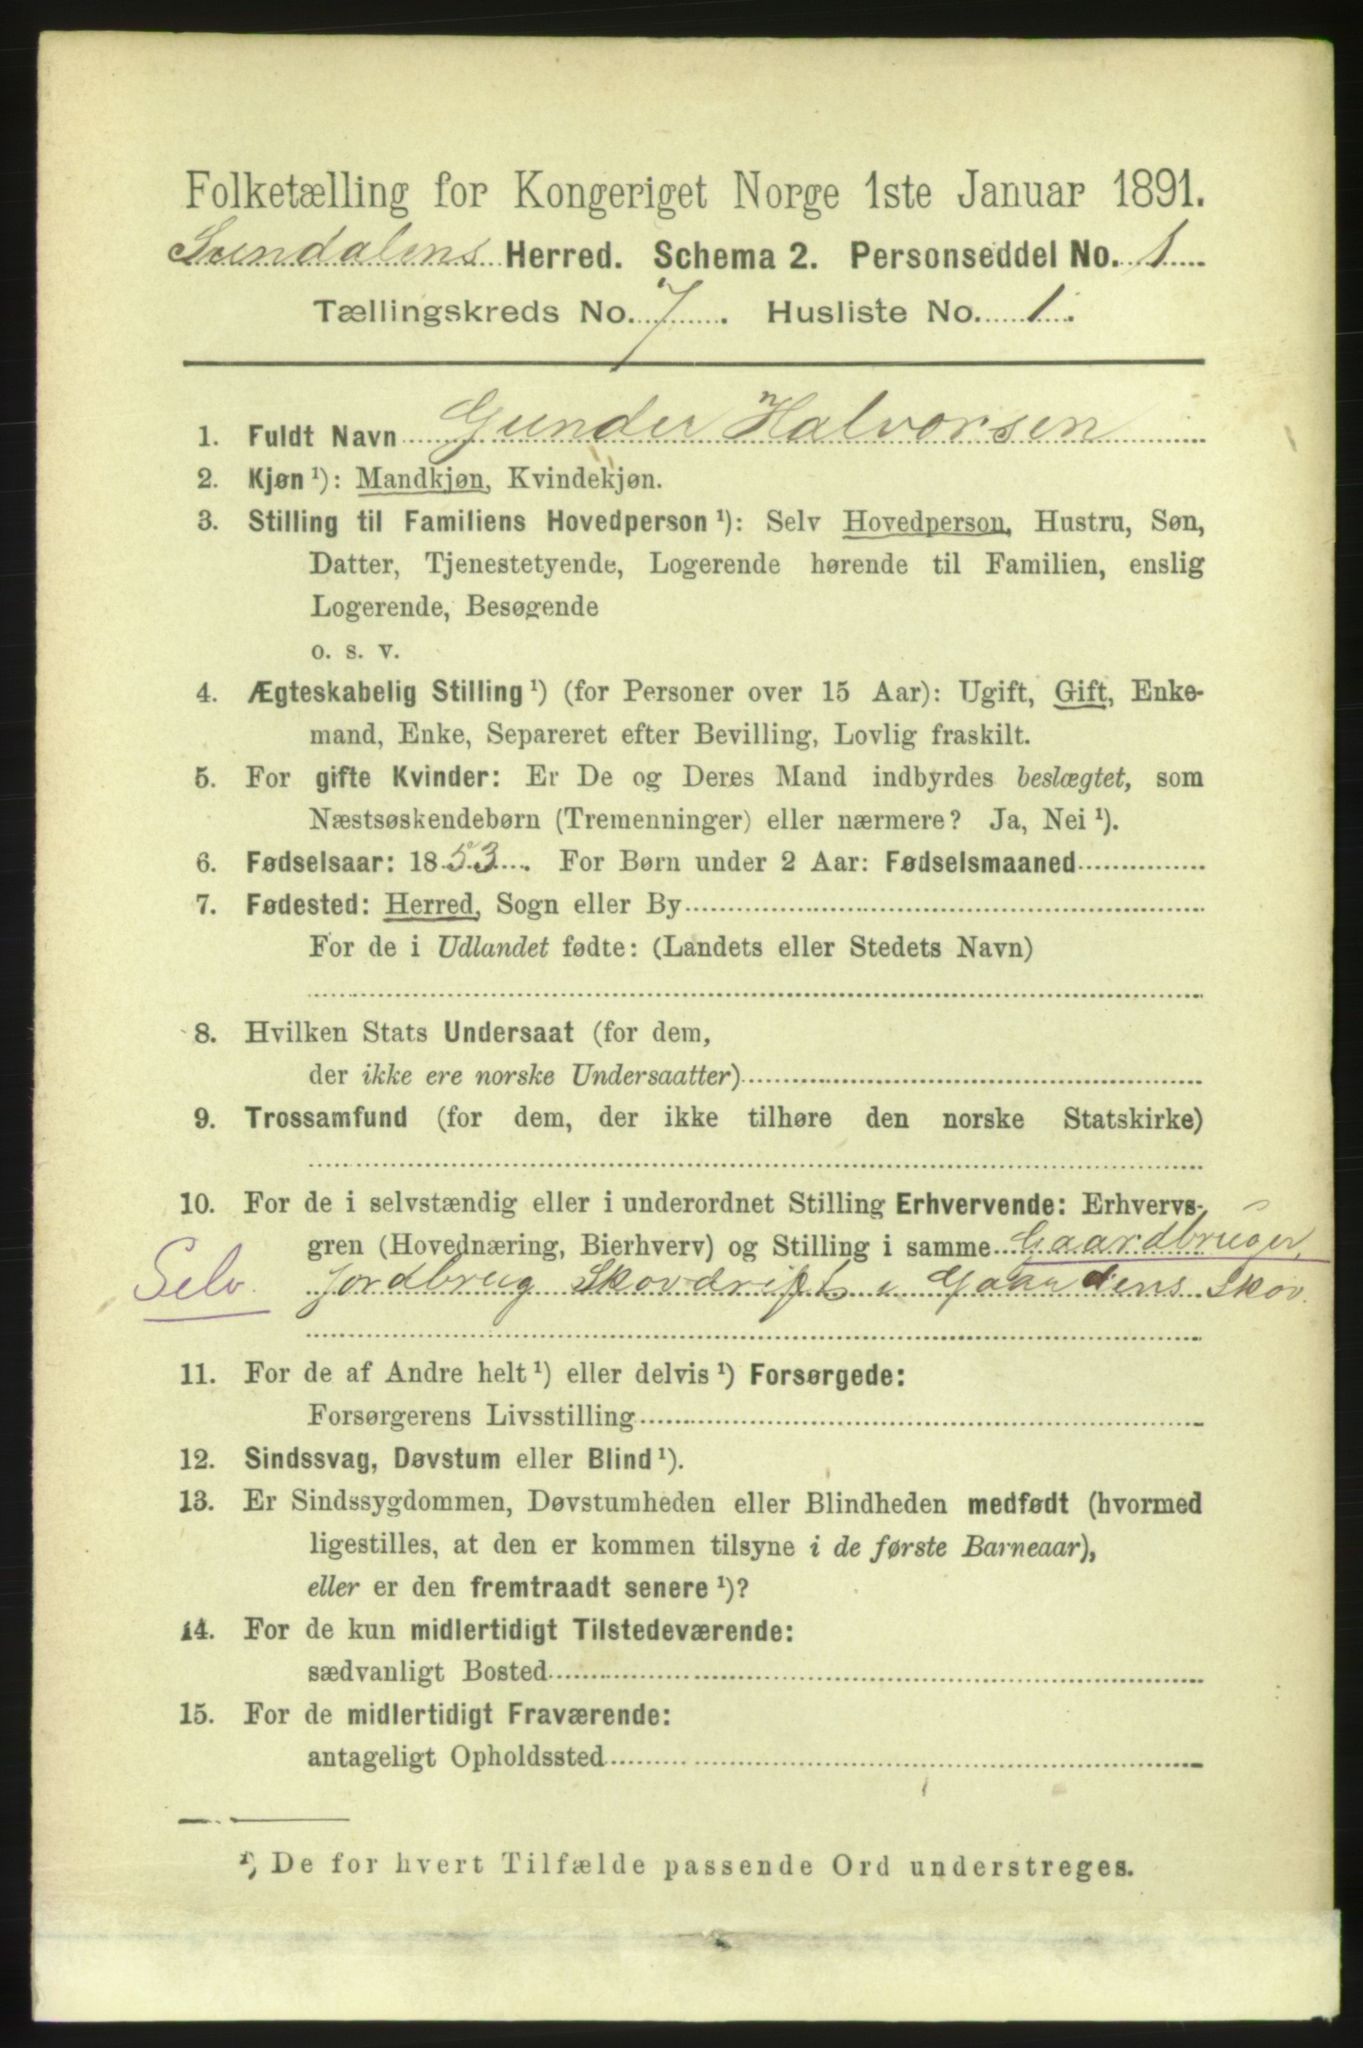 Folketælling for Kongeriget Norge 1ste Januar 1891.
Sundalens Herred. Schema 2. Personseddel No. 1
Tællingskreds No. 7. Husliste No. 1.
1. Fuldt Navn Gunder Halvorsen
2. Kjøn ¹): Mandkjøn, Kvindekjøn.
3. Stilling til Familiens Hovedperson ¹): Selv Hovedperson, Hustru, Søn,
Datter, Tjenestetyende, Logerende hørende til Familien, enslig
Logerende, Besøgende
o. s. v.
4. Ægteskabelig Stilling ¹) (for Personer over 15 Aar): Ugift, Gift, Enke-
mand, Enke, Separeret efter Bevilling, Lovlig fraskilt.
5. For gifte Kvinder: Er De og Deres Mand indbyrdes beslægtet, som
Næstsøskendebørn (Tremenninger) eller nærmere? Ja, Nei ¹).
6. Fødselsaar: 1853. For Børn under 2 Aar: Fødselsmaaned
7. Fødested: Herred, Sogn eller By
For de i Udlandet fødte: (Landets eller Stedets Navn)
8. Hvilken Stats Undersaat (for dem,
der ikke ere norske Undersaatter)
9. Trossamfund (for dem, der ikke tilhøre den norske Statskirke)
10. For de i selvstændig eller i underordnet Stilling Erhvervende: Erhvervs-
gren (Hovednæring, Bierhverv) og Stilling i samme Gaardbruger,
Selv. Jordbrug Skovdrift i Gaardens Skov.
11. For de af Andre helt ¹) eller delvis ¹) Forsørgede:
Forsørgerens Livsstilling
12. Sindssvag, Døvstum eller Blind ¹).
13. Er Sindssygdommen, Døvstumheden eller Blindheden medfødt (hvormed
ligestilles, at den er kommen tilsyne i de første Barneaar),
eller er den fremtraadt senere ¹)?
14. For de kun midlertidigt Tilstedeværende:
sædvanligt Bosted
15. For de midlertidigt Fraværende:
antageligt Opholdssted
¹) De for hvert Tilfælde passende Ord understreges.